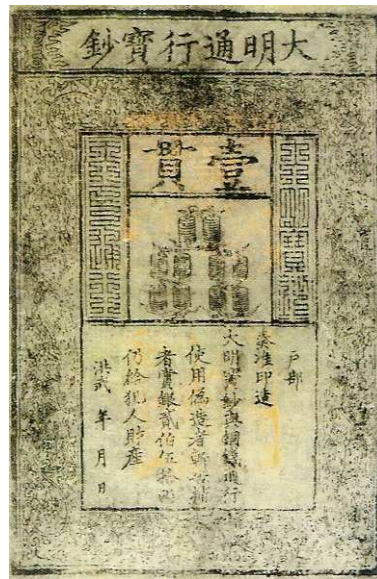 大明通行寶鈔
壹貫
大明寶鈔
天下通行
户部
奏准印造
大明寳鈔與銅錢通行
使用偽造者斬告捕
者賞銀貳伯伍拾兩
仍給犯人財産
洪武 年 月 日